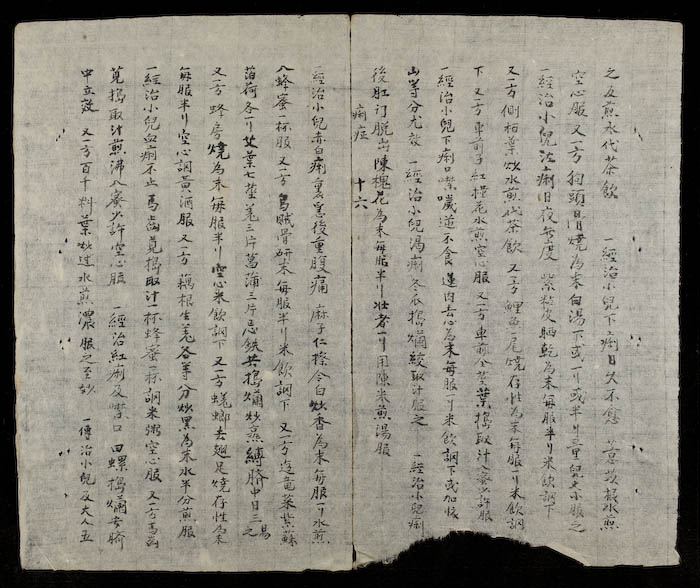 之及煎水代茶飲 一經治小兒下痢日久不愈 薏苡根水煎
空心服 又一方 狗頭骨燒為末白湯下或一刂或半刂量兒大小服之
一經治小兒 痢日夜無度 紫 皮晒乾為末每服半刂米飲調下
又一方 側柏葉炒水煎代茶飲 又一方 鯉魚尾燒存性為末每服一刂米飲調
下 又一方 車前子紅 花水煎空心服 又一方 車前全葉搗取汁入蜜少許服
一經治小兒下痢口噤嘔逆不食 蓮肉去心為末每服一刂米飲調下或加淮
山等分尤效 一經治小兒瀉痢 冬衣搗爛絞取汁服之 一經治小兒痢
後肛門脫出 陳槐花為末每服半刂壯者一刂用陳米煎湯服
痢症 十六
一經治小兒赤白痢裏急後重腹痛 麻子仁 令白炒香為末每服一刂水煎
入蜂蜜一杯服 又一方 烏賊骨研末每服半刂米飲調下 又一方 菜紫蘇
薄荷各一刂艾葉七莖羌三片菖蒲三片忌鉄共搗爛炒熟縛臍中日三易之
又一方 蜂房燒為末每服半刂空心米飲調下 又一方 蜣螂去翅足燒存性為末
每服半刂空心調黃酒服 又一方 藕根生羌各等分炒黑為末水半分煎服
一經治小兒血痢不止 馬齒莧搗取汁一杯蜂蜜一杯調米粥空心服 又一方 馬齒
莧搗取汁煎沸入蜜少許空心服 一經治紅痢及噤口 田螺搗爛安臍
中立效 又一方 百千料葉炒過水煎濃服之至妙 一傳治小兒及大人五